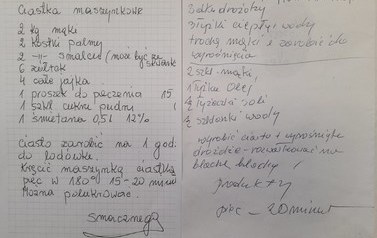 Ciastka maszynkowe
2 kg mąki
2 kostki palmy
2 -11- smalcu (może być ze skwarek
6 żółtek
4 całe jajka
1 proszek do pieczenia 15
1 szkl cukru pudru
1 śmietana 0,5 l 12%
Ciasto zarobić na 1 god.
do lodówki.
Kręcić maszynką ciastka
piec w 180° 15-20 minut
Można polukrować.
smacznego
drożdży
łyżki ciepłej wody
trochę mąki i zarobić do
wyrośnięcia
2 szkl. mąki,
olej
łyżeczki soli
szklanki wody
wyrobić ciasto i wyrośnięte
drożdże - rozwałkować na
blachę
produkty
piec - 20 minut